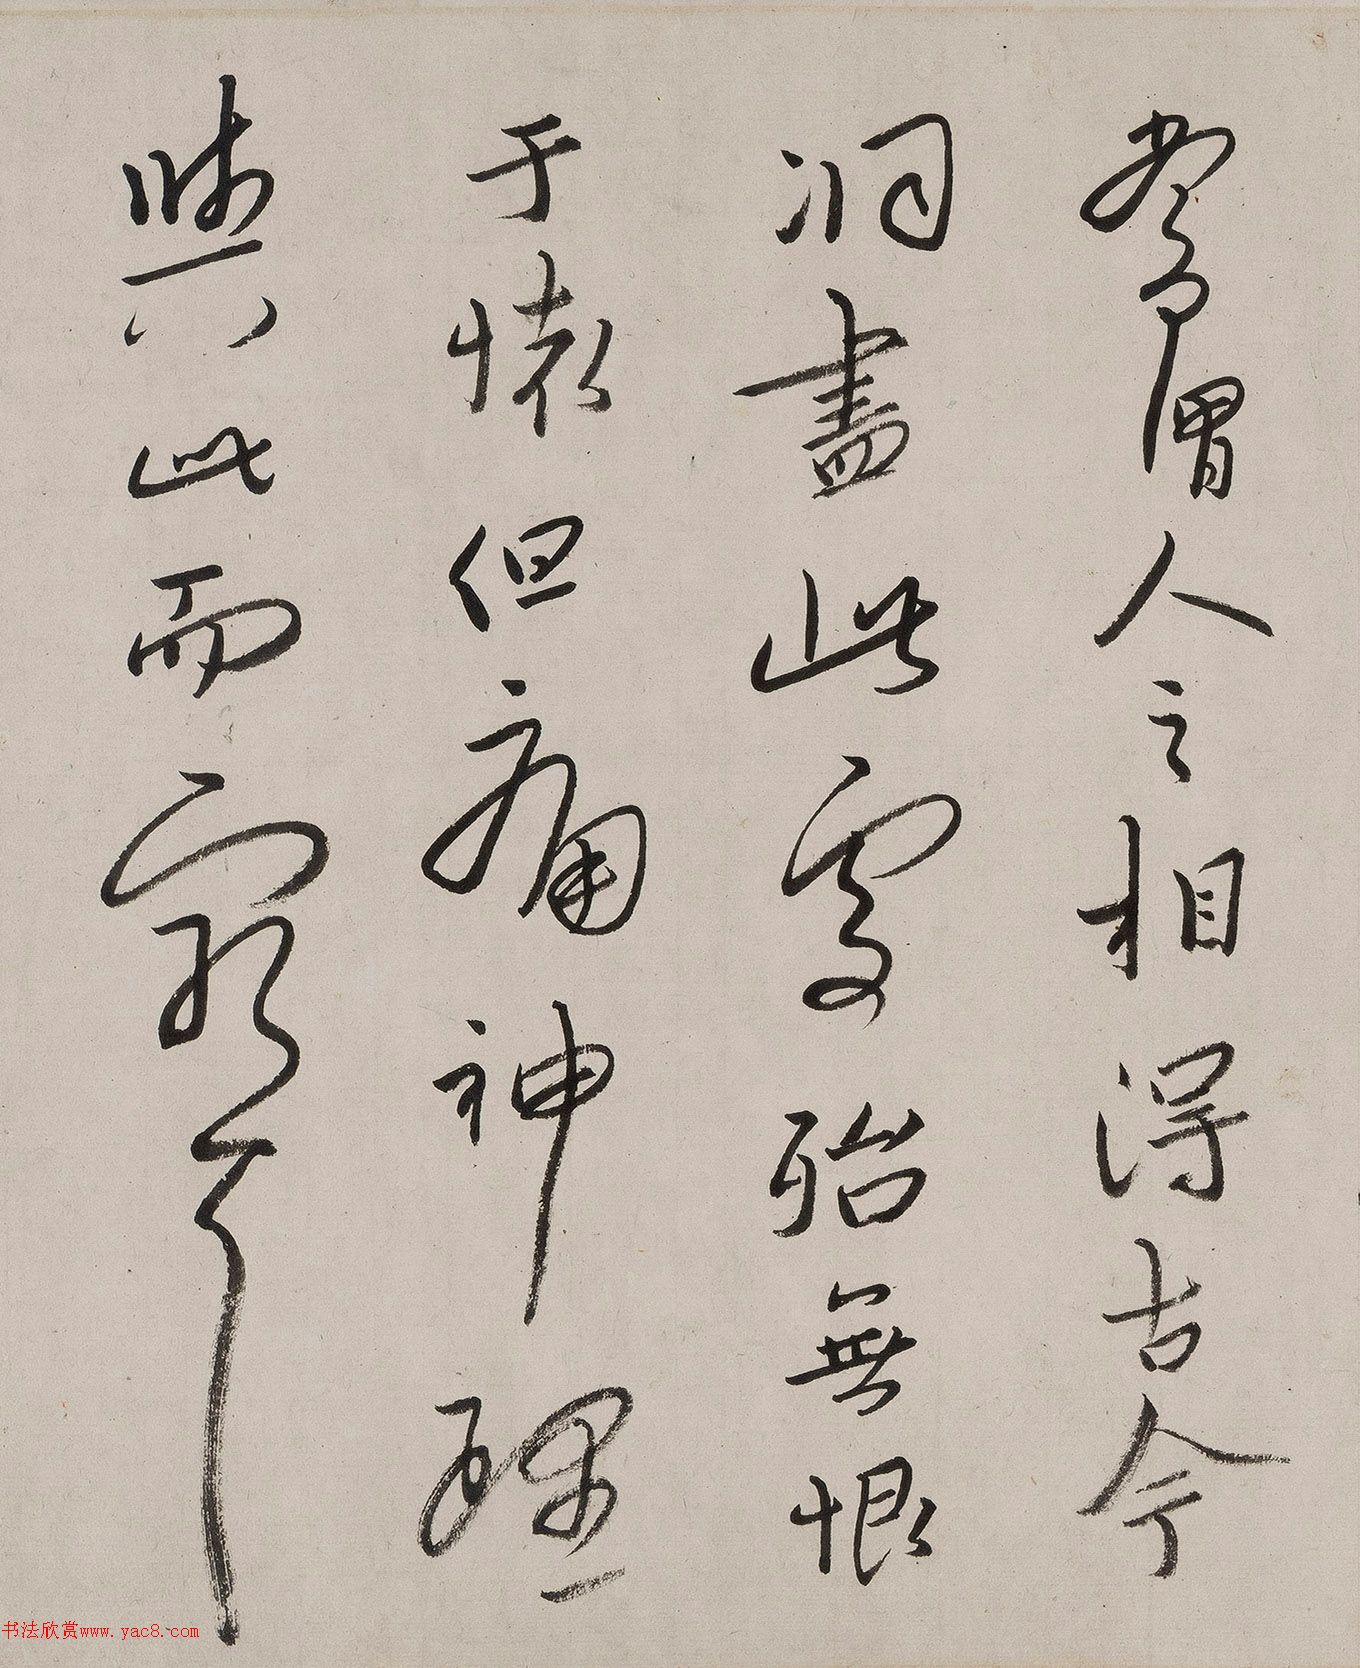 常謂人之相得古今
洞盡此處殆無恨
于懷但痛神理
與此而窮耳
书法欣赏www.yac8.com